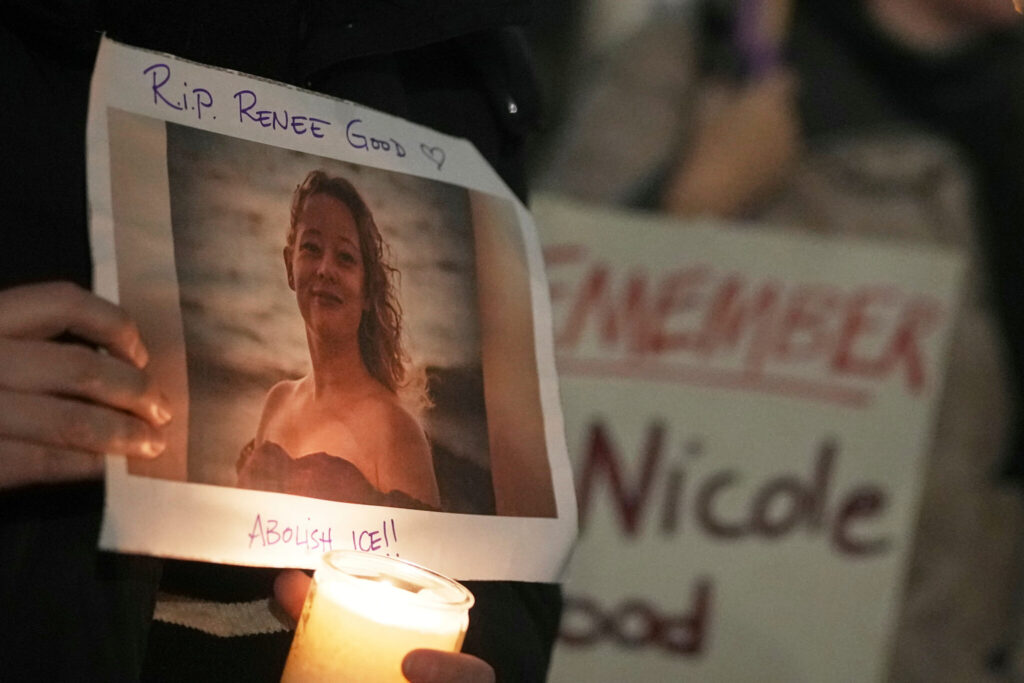 R.i.P. RENEE GOOD ♡
ABOLiSH ICE!!
EMEMBER
Nicole
ood